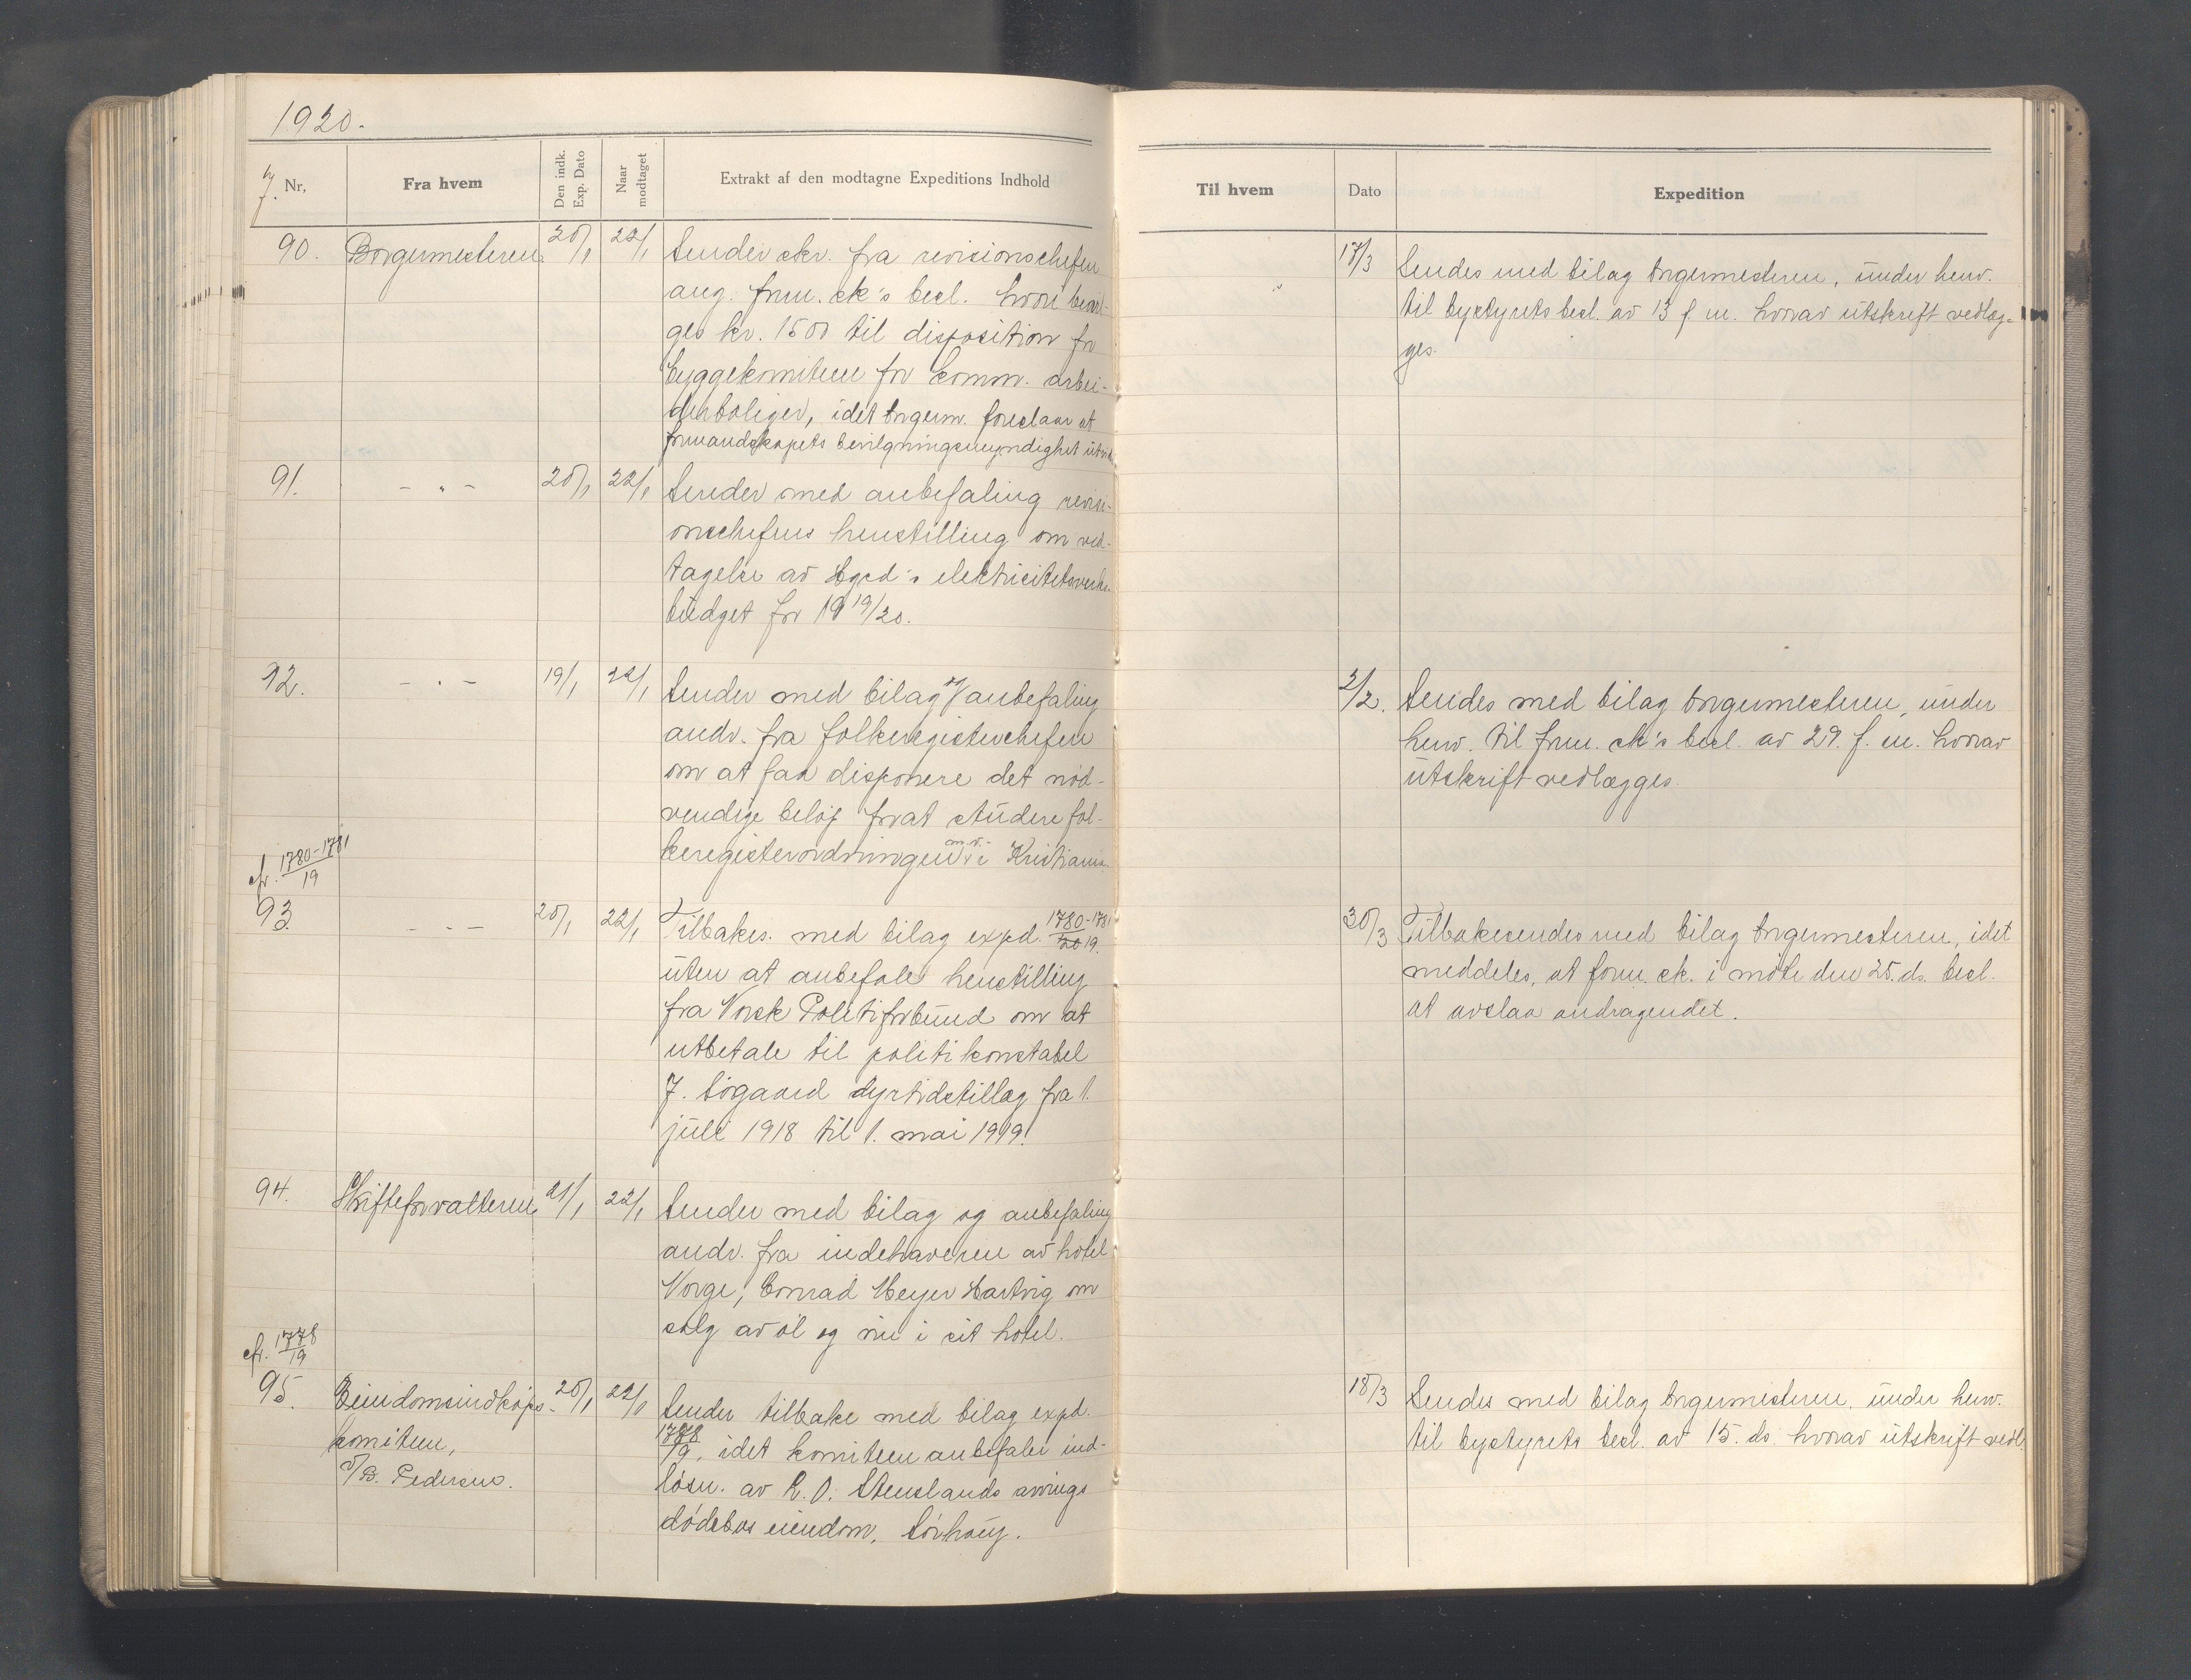 1920.
J. Nr,
Fra hvem
Den indk. Exp. Dato
Naar modtaget
Extrakt af den modtagne Expeditions Indhold
90. Borgermesteren 20/1 22/1 Sender skr. fra revisionschefen
ang. frm. sk's besl. hvori bevil-
ges kr. 1500 til disposition for
byggekomiteen for komm. arbei-
derboliger, idet borgerm. foreslaar at
formandskapets bevilgningsmyndighet
91. - " - 20/1 22/1 Sender med anbefaling revisi-
onschefens henstilling om ved-
tagelse av Hgsd's elektricitetsverks
budget for 1919/20.
92. - " - 19/1 22/1 Sender med bilag og anbefaling
andr. fra folkeregisterchefen
om at faa disponere det nød-
vendige beløp for at studere fol-
keregisterordningen m. v. i Kristiania.
cfr. 1780-1781/19
93. - " - 20/1 22/1 Tilbakes. med bilag expd. 1780-1781/19.
uten at anbefale henstilling
fra Norsk Politiforbund om at
utbetale til politikonstabel
J. Søgaard dyrtidstillæg fra 1.
juli 1918 til 1. mai 1919.
94. Skifteforvalteren 21/1 22/1 Sender med bilag og anbefaling
andr. fra indehaveren av hotel
Norge, Conrad Meyer Hartvig om
salg av øl og vin i sit hotel.
cfr. 1778/19
95. Eiendomsindkjøps- 20/1 22/1 Sender tilbake med bilag expd.
komiteen, 1778/19, idet komiteen anbefaler ind-
v/ B. Pedersen. løsn. av L. O. Stenslands arvings
dødsbos eiendom, Sørhaug.
Til hvem
Dato
Expedition
17/3 Sendes med bilag borgermesteren, under henv.
til bystyrets besl. av 13 f. m. hvorav utskrift vedlæg-
ges.
2/2. Sendes med bilag borgermesteren, under
henv. til frm. sk's besl. av 29. f. m. hvorav
utskrift vedlægges.
30/3 Tilbakesendes med bilag borgermesteren, idet
meddeles, at form. sk. i møte den 25. ds. besl.
at avslaa andragendet.
18/3 Sendes med bilag borgermesteren, under henv.
til bystyrets besl. av 15. ds hvorav utskrift vedl.